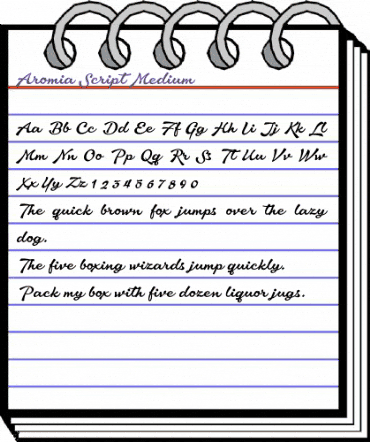 Aromia Script Medium
Aa Bb Cc Dd Ee Ff Gg Hh Ii Jj Kk Ll
Mm Nn Oo Pp Qq Rr Ss Tt Uu Vv Ww
Xx Yy Zz 1 2 3 4 5 6 7 8 9 0
The quick brown fox jumps over the lazy
dog.
The five boxing wizards jump quickly.
Pack my box with five dozen liquor jugs.